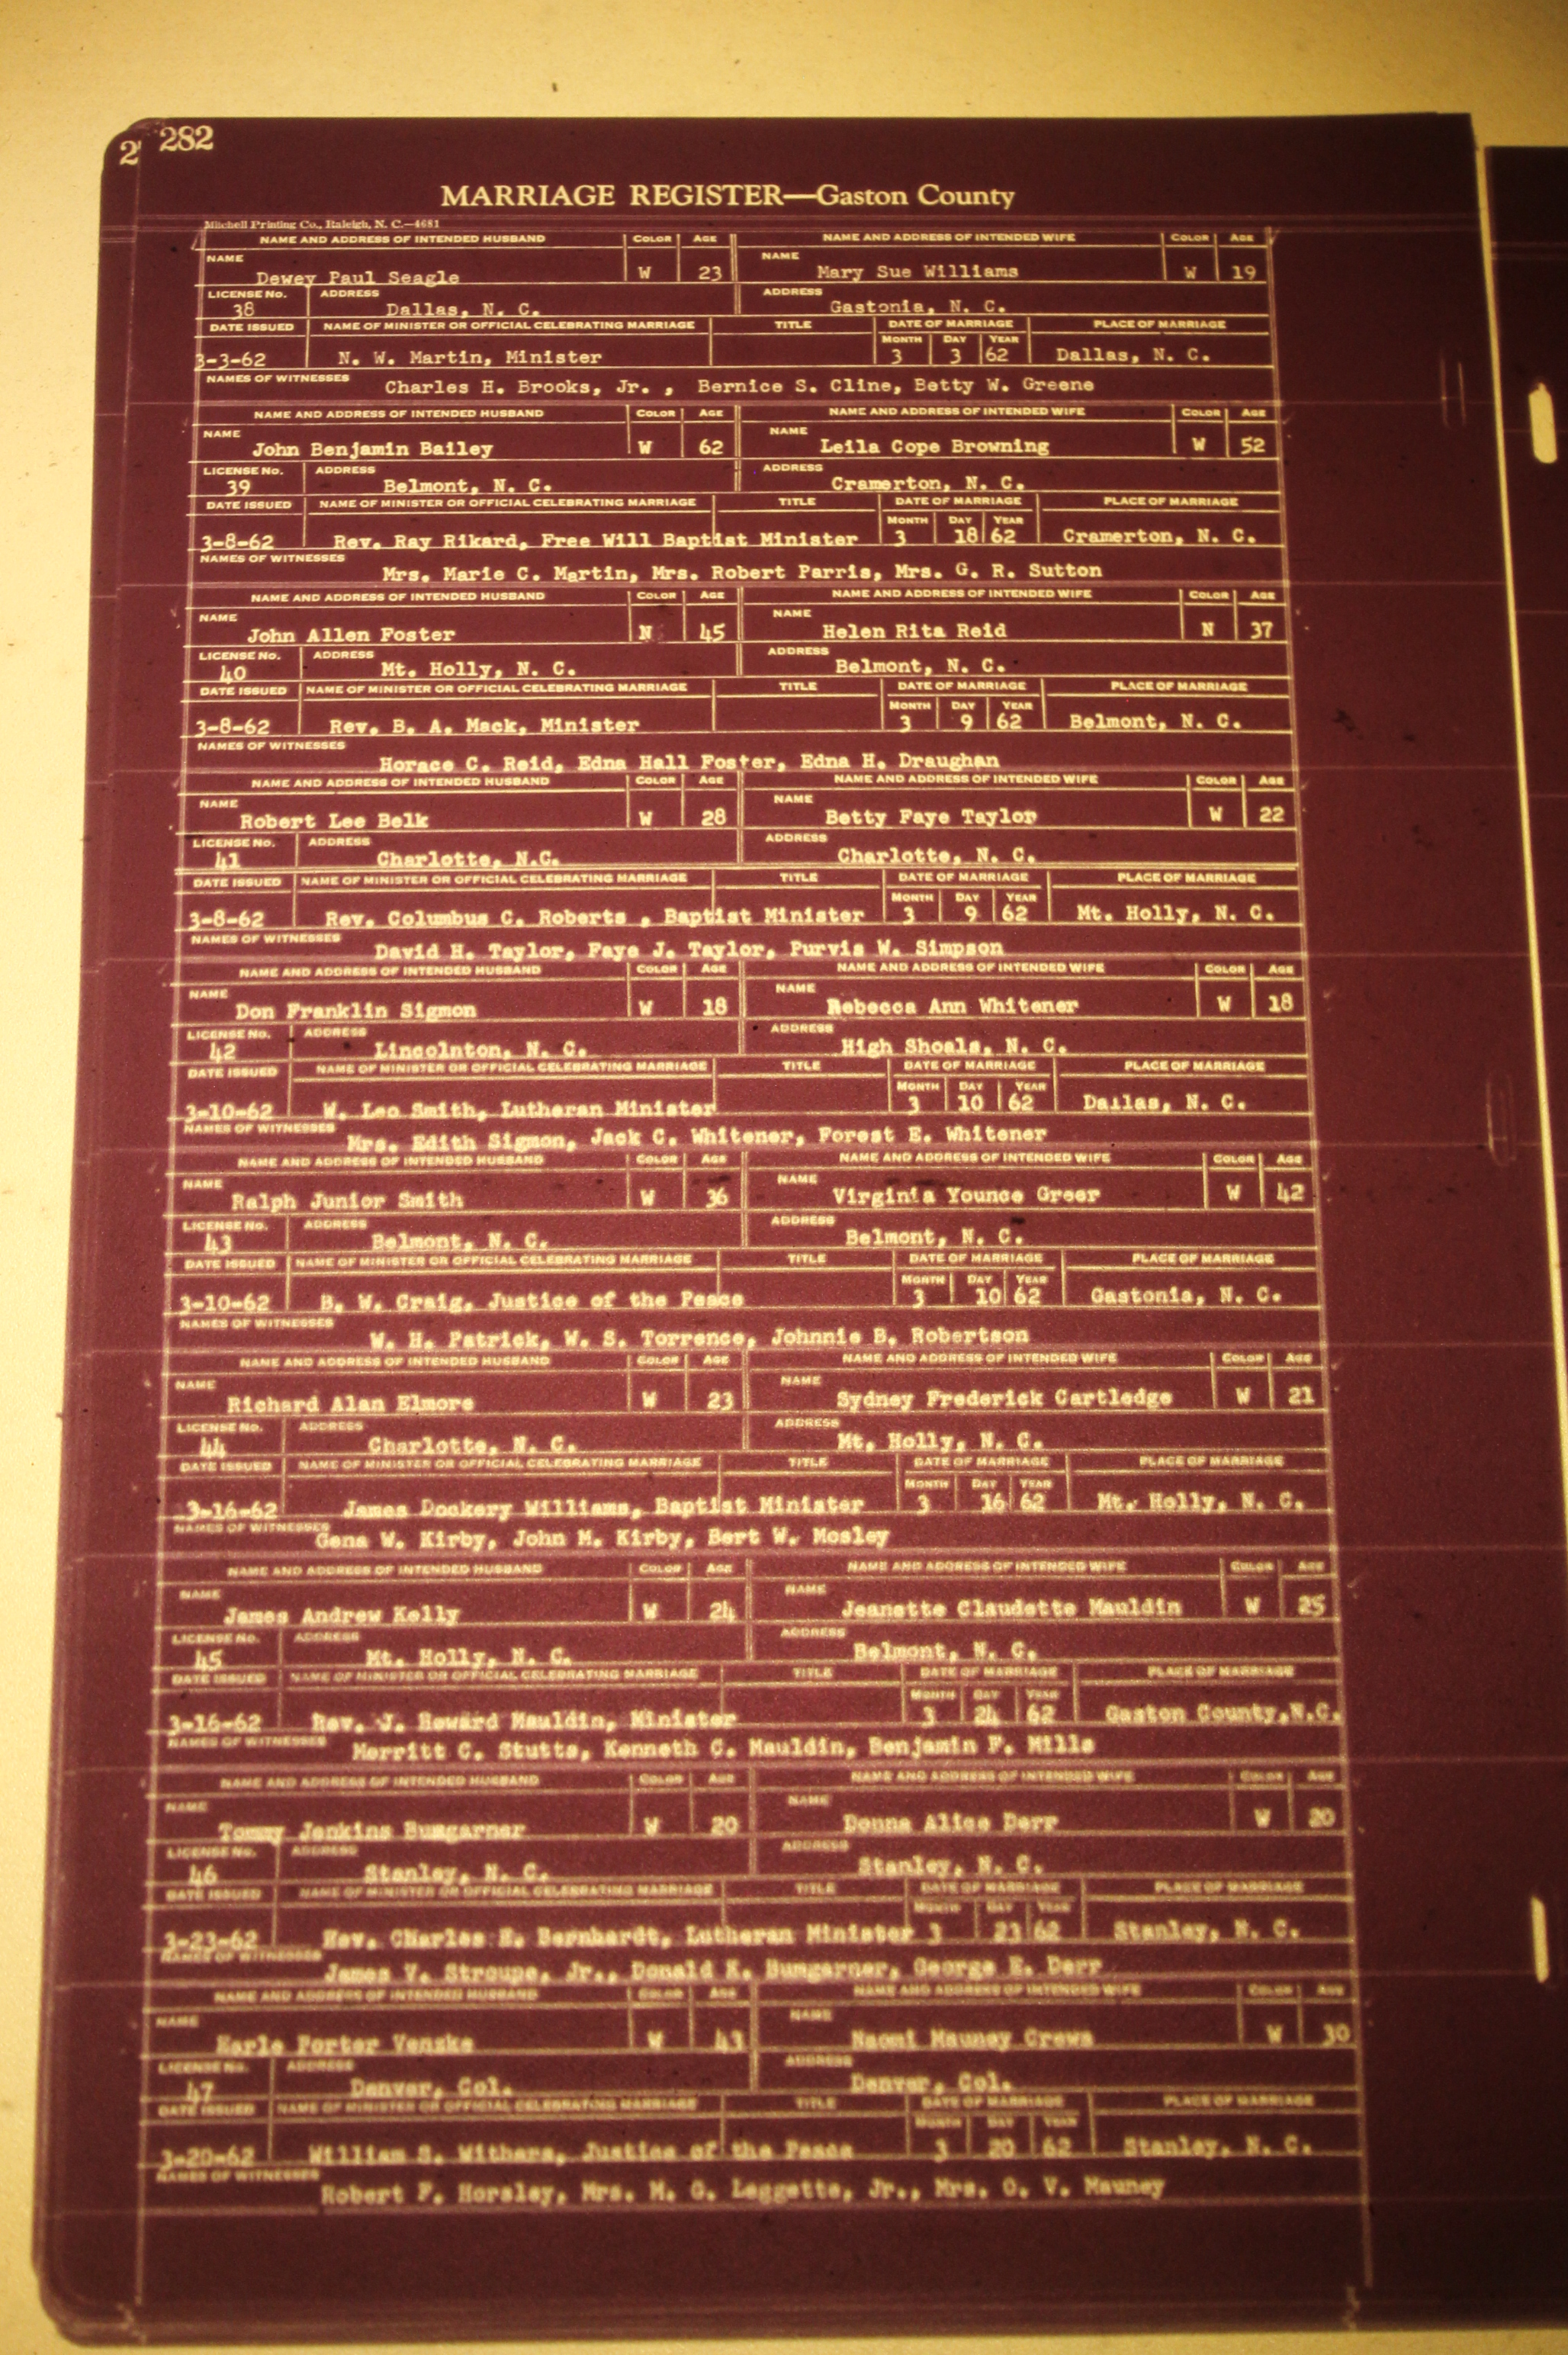 2 282
MARRIAGE REGISTER—Gaston County
Mitchell Printing Co., Raleigh, N. C.—4681
NAME AND ADDRESS OF INTENDED HUSBAND COLOR AGE NAME AND ADDRESS OF INTENDED WIFE COLOR AGE
NAME Dewey Paul Seagle W 23 NAME Mary Sue Williams W 19
LICENSE No. 38 ADDRESS Dallas, N. C. ADDRESS Gastonia, N. C.
DATE ISSUED NAME OF MINISTER OR OFFICIAL CELEBRATING MARRIAGE TITLE DATE OF MARRIAGE PLACE OF MARRIAGE
MONTH DAY YEAR
3-3-62 N. W. Martin, Minister 3 3 62 Dallas, N. C.
NAMES OF WITNESSES Charles H. Brooks, Jr. , Bernice S. Cline, Betty W. Greene
NAME AND ADDRESS OF INTENDED HUSBAND COLOR AGE NAME AND ADDRESS OF INTENDED WIFE COLOR AGE
NAME John Benjamin Bailey W 62 NAME Leila Cope Browning W 52
LICENSE No. 39 ADDRESS Belmont, N. C. ADDRESS Cramerton, N. C.
DATE ISSUED NAME OF MINISTER OR OFFICIAL CELEBRATING MARRIAGE TITLE DATE OF MARRIAGE PLACE OF MARRIAGE
MONTH DAY YEAR
3-8-62 Rev. Ray Rikard, Free Will Baptist Minister 3 18 62 Cramerton, N. C.
NAMES OF WITNESSES Mrs. Marie C. Martin, Mrs. Robert Parris, Mrs. G. R. Sutton
NAME AND ADDRESS OF INTENDED HUSBAND COLOR AGE NAME AND ADDRESS OF INTENDED WIFE COLOR AGE
NAME John Allen Foster N 45 NAME Helen Rita Reid N 37
LICENSE No. 40 ADDRESS Mt. Holly, N. C. ADDRESS Belmont, N. C.
DATE ISSUED NAME OF MINISTER OR OFFICIAL CELEBRATING MARRIAGE TITLE DATE OF MARRIAGE PLACE OF MARRIAGE
MONTH DAY YEAR
3-8-62 Rev. B. A. Mack, Minister 3 9 62 Belmont, N. C.
NAMES OF WITNESSES Horace C. Reid, Edna Hall Foster, Edna H. Draughan
NAME AND ADDRESS OF INTENDED HUSBAND COLOR AGE NAME AND ADDRESS OF INTENDED WIFE COLOR AGE
NAME Robert Lee Belk W 28 NAME Betty Faye Taylor W 22
LICENSE No. 41 ADDRESS Charlotte, N.C. ADDRESS Charlotte, N. C.
DATE ISSUED NAME OF MINISTER OR OFFICIAL CELEBRATING MARRIAGE TITLE DATE OF MARRIAGE PLACE OF MARRIAGE
MONTH DAY YEAR
3-8-62 Rev. Columbus C. Roberts , Baptist Minister 3 9 62 Mt. Holly, N. C.
NAMES OF WITNESSES David H. Taylor, Faye J. Taylor, Purvis W. Simpson
NAME AND ADDRESS OF INTENDED HUSBAND COLOR AGE NAME AND ADDRESS OF INTENDED WIFE COLOR AGE
NAME Don Franklin Sigmon W 18 NAME Rebecca Ann Whitener W 18
LICENSE No. 42 ADDRESS Lincolnton, N. C. ADDRESS High Shoals, N. C.
DATE ISSUED NAME OF MINISTER OR OFFICIAL CELEBRATING MARRIAGE TITLE DATE OF MARRIAGE PLACE OF MARRIAGE
MONTH DAY YEAR
3-10-62 W. Leo Smith, Lutheran Minister 3 10 62 Dallas, N. C.
NAMES OF WITNESSES Mrs. Edith Sigmon, Jack C. Whitener, Forest E. Whitener
NAME AND ADDRESS OF INTENDED HUSBAND COLOR AGE NAME AND ADDRESS OF INTENDED WIFE COLOR AGE
NAME Ralph Junior Smith W 36 NAME Virginia Younce Greer W 42
LICENSE No. 43 ADDRESS Belmont, N. C. ADDRESS Belmont, N. C.
DATE ISSUED NAME OF MINISTER OR OFFICIAL CELEBRATING MARRIAGE TITLE DATE OF MARRIAGE PLACE OF MARRIAGE
MONTH DAY YEAR
3-10-62 B. W. Craig, Justice of the Peace 3 10 62 Gastonia, N. C.
NAMES OF WITNESSES W. H. Patrick, W. S. Torrence, Johnnie B. Robertson
NAME AND ADDRESS OF INTENDED HUSBAND COLOR AGE NAME AND ADDRESS OF INTENDED WIFE COLOR AGE
NAME Richard Alan Elmore W 23 NAME Sydney Frederick Cartledge W 21
LICENSE No. 44 ADDRESS Charlotte, N. C. ADDRESS Mt. Holly, N. C.
DATE ISSUED NAME OF MINISTER OR OFFICIAL CELEBRATING MARRIAGE TITLE DATE OF MARRIAGE PLACE OF MARRIAGE
MONTH DAY YEAR
3-16-62 James Dockery Williams, Baptist Minister 3 16 62 Mt. Holly, N. C.
NAMES OF WITNESSES Gena W. Kirby, John M. Kirby, Bert W. Mosley
NAME AND ADDRESS OF INTENDED HUSBAND COLOR AGE NAME AND ADDRESS OF INTENDED WIFE COLOR AGE
NAME James Andrew Kelly W 24 NAME Jeanette Claudette Mauldin W 25
LICENSE No. 45 ADDRESS Mt. Holly, N. C. ADDRESS Belmont, N. C.
DATE ISSUED NAME OF MINISTER OR OFFICIAL CELEBRATING MARRIAGE TITLE DATE OF MARRIAGE PLACE OF MARRIAGE
MONTH DAY YEAR
3-16-62 Rev. J. Howard Mauldin, Minister 3 24 62 Gaston County,N.C.
NAMES OF WITNESSES Merritt C. Stutts, Kenneth C. Mauldin, Benjamin F. Mills
NAME AND ADDRESS OF INTENDED HUSBAND COLOR AGE NAME AND ADDRESS OF INTENDED WIFE COLOR AGE
NAME Tommy Jenkins Bumgarner W 20 NAME Donna Alice Derr W 20
LICENSE No. 46 ADDRESS Stanley, N. C. ADDRESS Stanley, N. C.
DATE ISSUED NAME OF MINISTER OR OFFICIAL CELEBRATING MARRIAGE TITLE DATE OF MARRIAGE PLACE OF MARRIAGE
MONTH DAY YEAR
3-23-62 Rev. Charles H. Bernhardt, Lutheran Minister 3 23 62 Stanley, N. C.
NAMES OF WITNESSES James V. Stroupe, Jr., Donald K. Bumgarner, George E. Derr
NAME AND ADDRESS OF INTENDED HUSBAND COLOR AGE NAME AND ADDRESS OF INTENDED WIFE COLOR AGE
NAME Earle Porter Venzke W 43 NAME Naomi Mauney Crews W 30
LICENSE No. 47 ADDRESS Denver, Col. ADDRESS Denver, Col.
DATE ISSUED NAME OF MINISTER OR OFFICIAL CELEBRATING MARRIAGE TITLE DATE OF MARRIAGE PLACE OF MARRIAGE
MONTH DAY YEAR
3-20-62 William S. Withers, Justice of the Peace 3 20 62 Stanley, N. C.
NAMES OF WITNESSES Robert F. Horsley, Mrs. M. G. Leggette, Jr., Mrs. O. V. Mauney